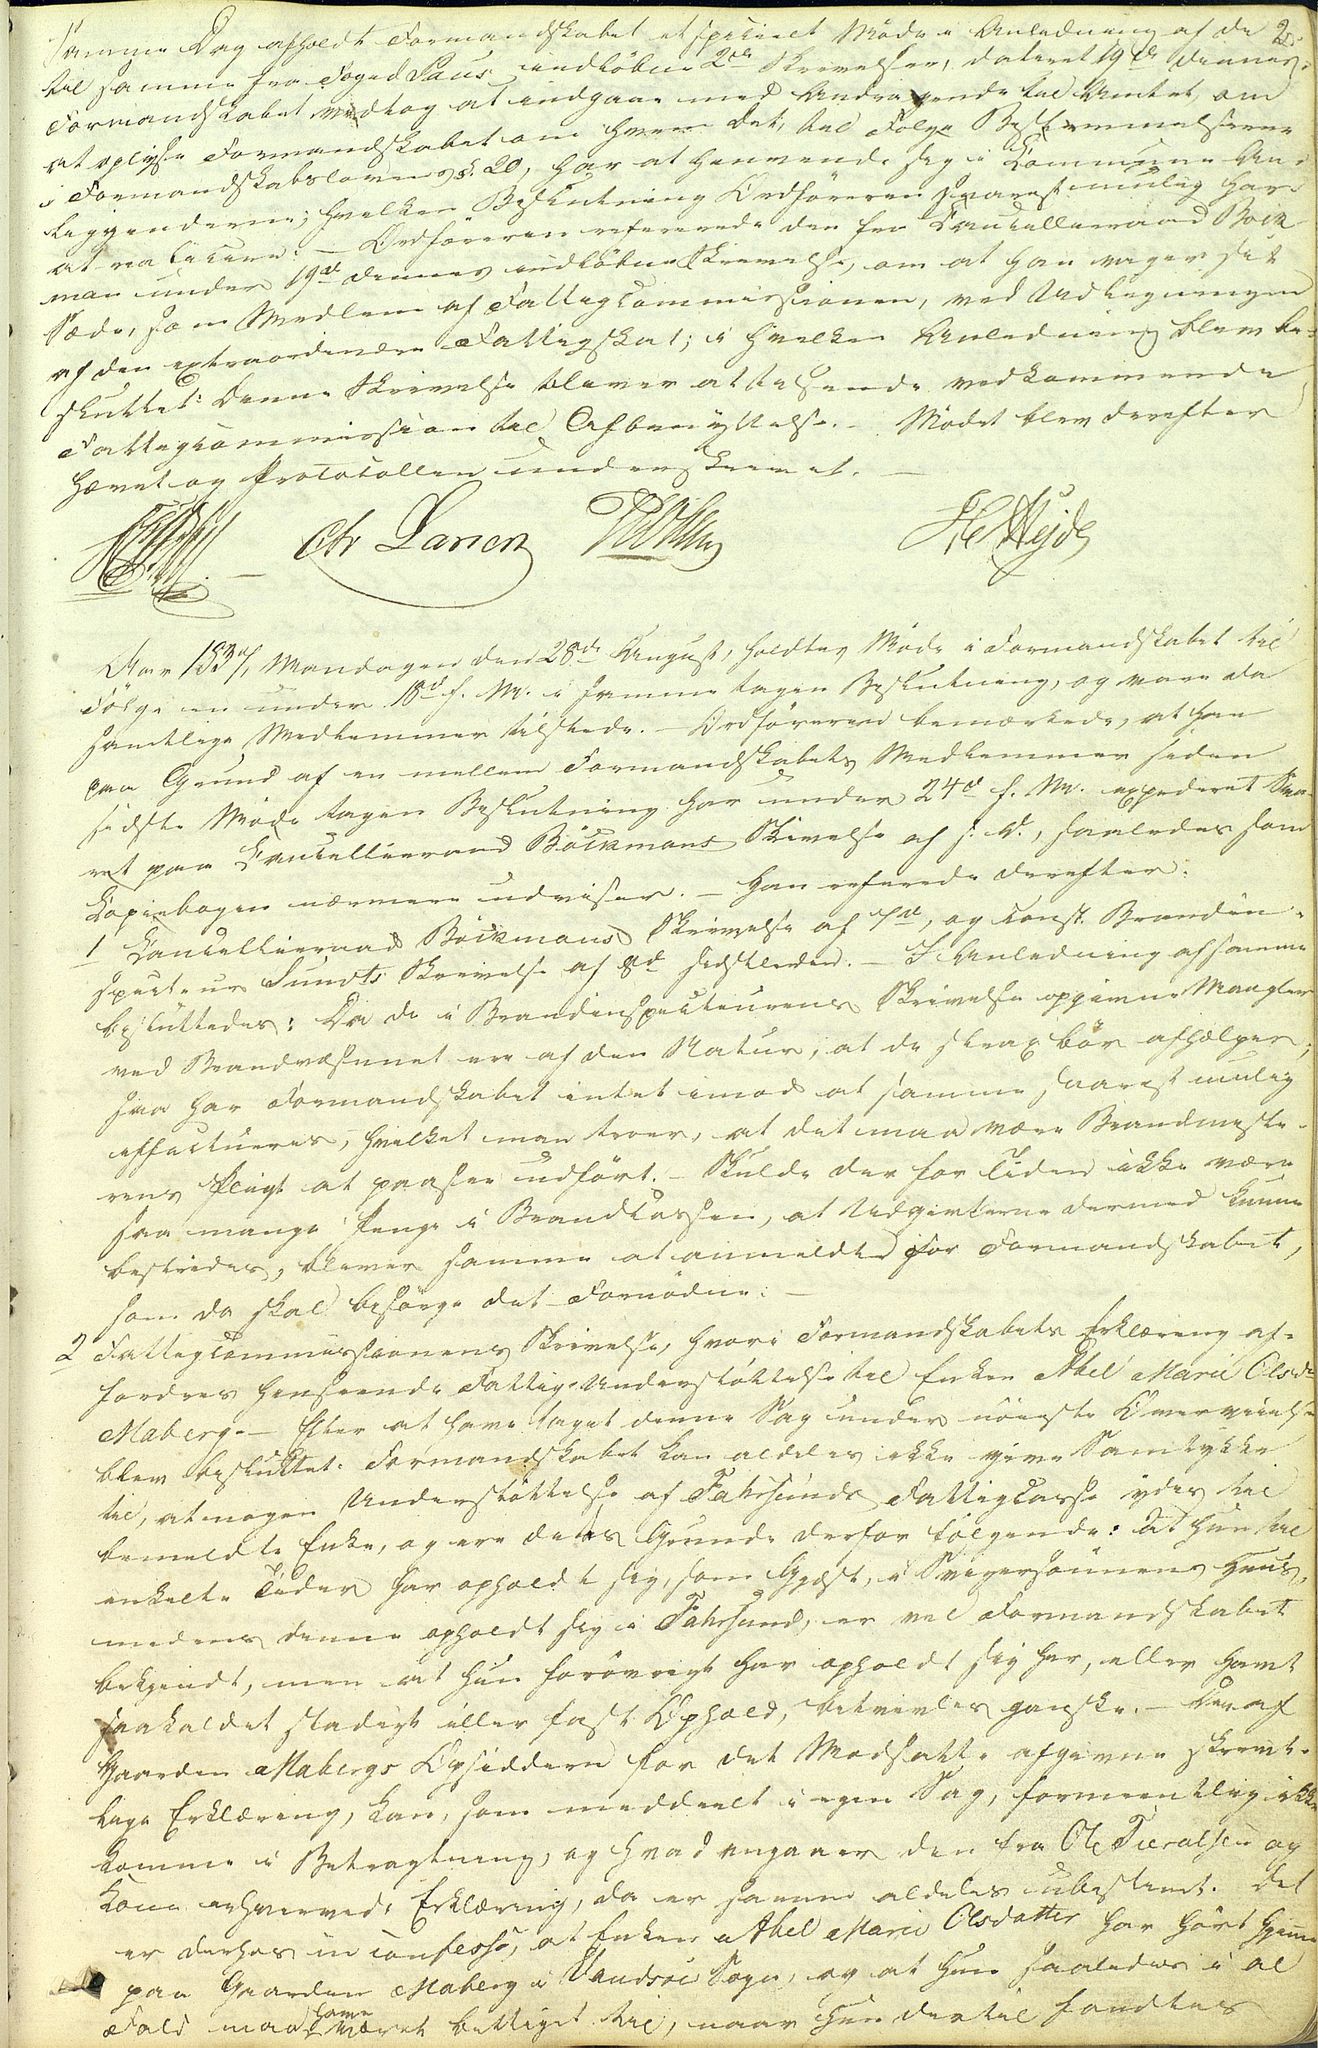 Samme Dag afholdt Formandskabet et specielt Møde i Anledning af de 2
til samme fra Foged Paus indløbne 2de Skrivelser, dateret 19de dennes.
Formandskabet vedtog at indgaae med Andragende til Amtet, om
at oplyse Formandskabet om hvem det, til Følge Bestemmelserne
i Formandskabslovens §. 20, har at henvende sig i Commune An-
liggenderne; hvilken Beslutning Ordføreren snarest mulig har
at realisere. – Ordføreren refererede den fra Cancelliraad Böck
man under 19de dennes indløbne Skrivelse, om at han veger sit
Sæde, som Medlem af Fattigcommissionen, ved Udligningen
af den extraordinære Fattigskat; i hvilken Anledning blev be-
sluttet: Denne Skrivelse bliver at tilsende vedkommende
Fattigcommission til Afbenyttelse. – Mødet blev derefter
hævet og Protocollen underskrevet. –
Chr Larsen
Aar 1837, Mandagen den 28de August, holdtes Møde i Formandskabet til
Følge en under 18de f. M. i samme tagen Beslutning, og vare da
samtlige Medlemmer tilstede. – Ordføreren bemærkede, at han
paa Grund af en mellem Formandskabets Medlemmer siden
sidste Møde tagen Beslutning har under 24de f. M. expederet Sva-
ret paa Cancellieraad Böckmans Skrivelse af s. D., saaledes som
Copiebogen nærmere udviser. – Han refererede derefter:
1 Cancellieraad Böckmans Skrivelse af 7de, og const. Brandin-
specteur Sundts Skrivelse af 8de sidstleden. – I Anledning af samme
besluttedes: Da de i Brandinspecteurens Skrivelse opgivne Mangler
ved Brandvæsenet ere af den Natur, at de strax bør afhjælpes,
saa har Formandskabet intet imod at samme snarest mulig
effectueres, hvilket man troer, at det maa være Brandmeste-
rens Pligt at paasee udført. – Skulde der for Tiden ikke være
saa mange Penge i Brandcassen, at Udgivterne dermed kunne
bestrides, bliver samme at anmelde for Formandskabet,
som da skal besørge det Fornødne. –
2 Fattigcommissionens Skrivelse, hvori Formandskabets Erklæring af-
fordres henseende Fattig-Understøttelse til Enken Abel Marie Olsdr
Maberg. – Efter at have taget denne Sag under nøieste Overveielse
blev besluttet. Formandskabet kan aldeles ikke give Samtykke
til, at nogen Understøttelse af Fahrsunds Fattigcasse ydes til
bemeldte Enke, og ere dets Grunde derfor følgende: at hun til
enkelte Tider har opholdt sig, som Gjæst, i Svigersønnens Huus,
medens denne opholdt sig i Fahrsund, er vel Formandskabet
bekjendt, men at hun forøvrigt har opholdt sig her, eller havt
saakaldet stadigt eller fast Ophold, betvivles ganske. – Den af
Gaarden Mabergs Opsiddere for det Modsatte afgivne skrevt-
lige Erklæring, kan, som meddeelt i egen Sag, formeentlig ikke
komme i Betragtning, og hvad angaaer den fra Ole og
Kone erhvervede Erklæring, da er samme aldeles ubestemt. Det
er derhos in confesso, at Enken Abel Marie Olsdatter har hørt hjemme
paa Gaarden Maberg i Vandsøe Sogn, og at hun saaledes i al
Fald maa have været berettiget til, naar hun dertil fandtes